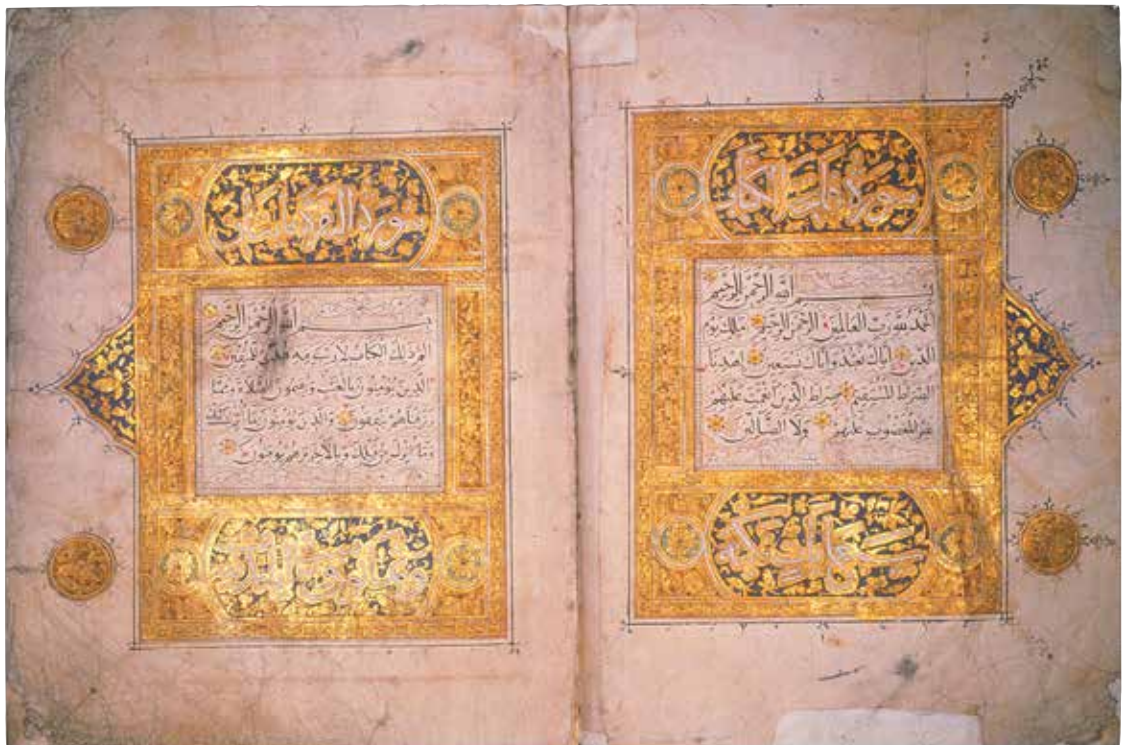 سورة فاتحة الكتاب
بسم الله الرحمن الرحيم
الحمد لله رب العالمين الرحمن الرحيم مالك يوم
الدين اياك نعبد واياك نستعين اهدنا
الصراط المستقيم صراط الذين انعمت عليهم
غير المغضوب عليهم ولا الضالين
سورة البقرة
بسم الله الرحمن الرحيم
الم ذلك الكتاب لا ريب فيه هدى للمتقين
الذين يؤمنون بالغيب ويقيمون الصلاة ومما
رزقناهم ينفقون والذين يؤمنون بما انزل اليك
وما انزل من قبلك وبالآخرة هم يوقنون